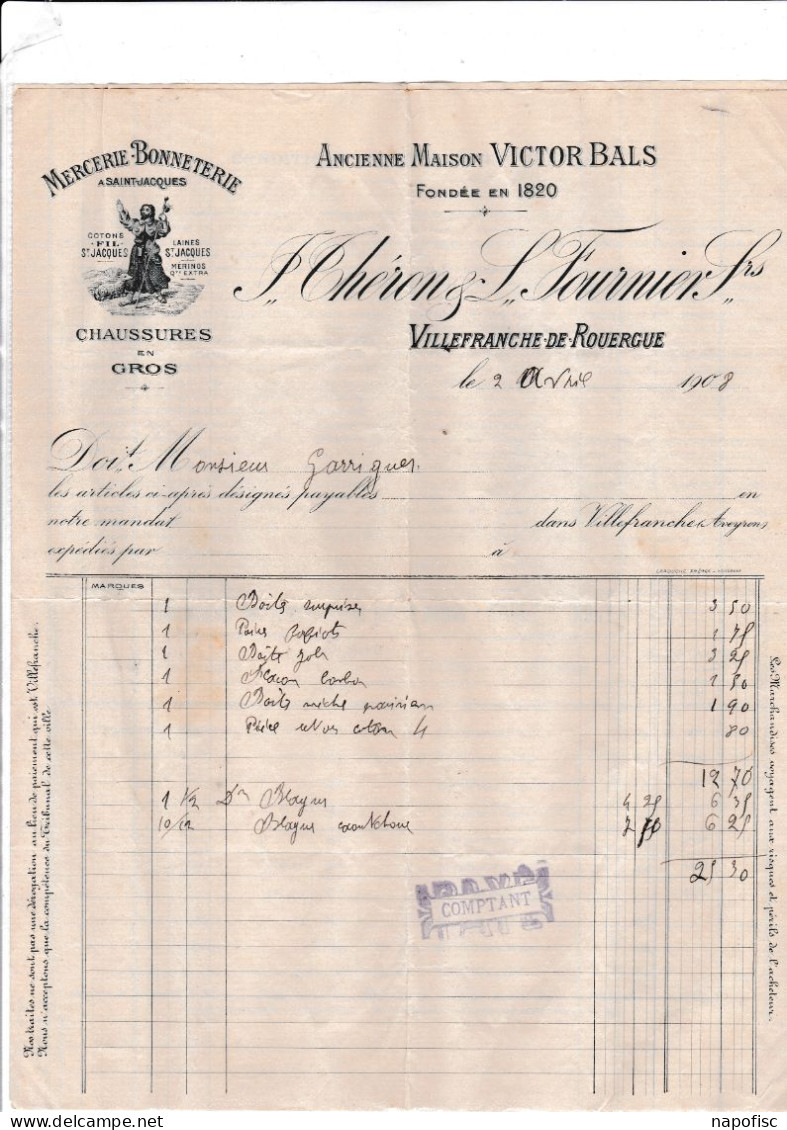 MERCERIE-BONNETERIE
A SAINT-JACQUES
COTONS
FIL
ST JACQUES
LAINES
ST JACQUES
MÉRINOS
QTÉ EXTRA
CHAUSSURES
EN
GROS
ANCIENNE MAISON VICTOR BALS
FONDÉE EN 1820
Théron & L. Fournier Srs
VILLEFRANCHE-DE-ROUERGUE
le 2 Avril 1908
Doit Monsieur Garrigues
les articles ci-après désignés payables en
notre mandat dans Villefranche (Aveyron)
expédiés par à
MARQUES
1 Boite 3 50
1 Paire 1 75
1 Boite 3 25
1 1 50
1 Boite 1 90
1 Paire coton 4 80
12 70
1 1/2 Dne 4 25 6 35
10/12 7 50 6 25
25 30
COMPTANT
Nos traites ne sont pas une dérogation au lieu de paiement qui est Villefranche.
Nous n'acceptons que la compétence du Tribunal de cette ville
Les Marchandises voyagent aux risques et périls de l'acheteur.
napofisc
www.delcampe.net